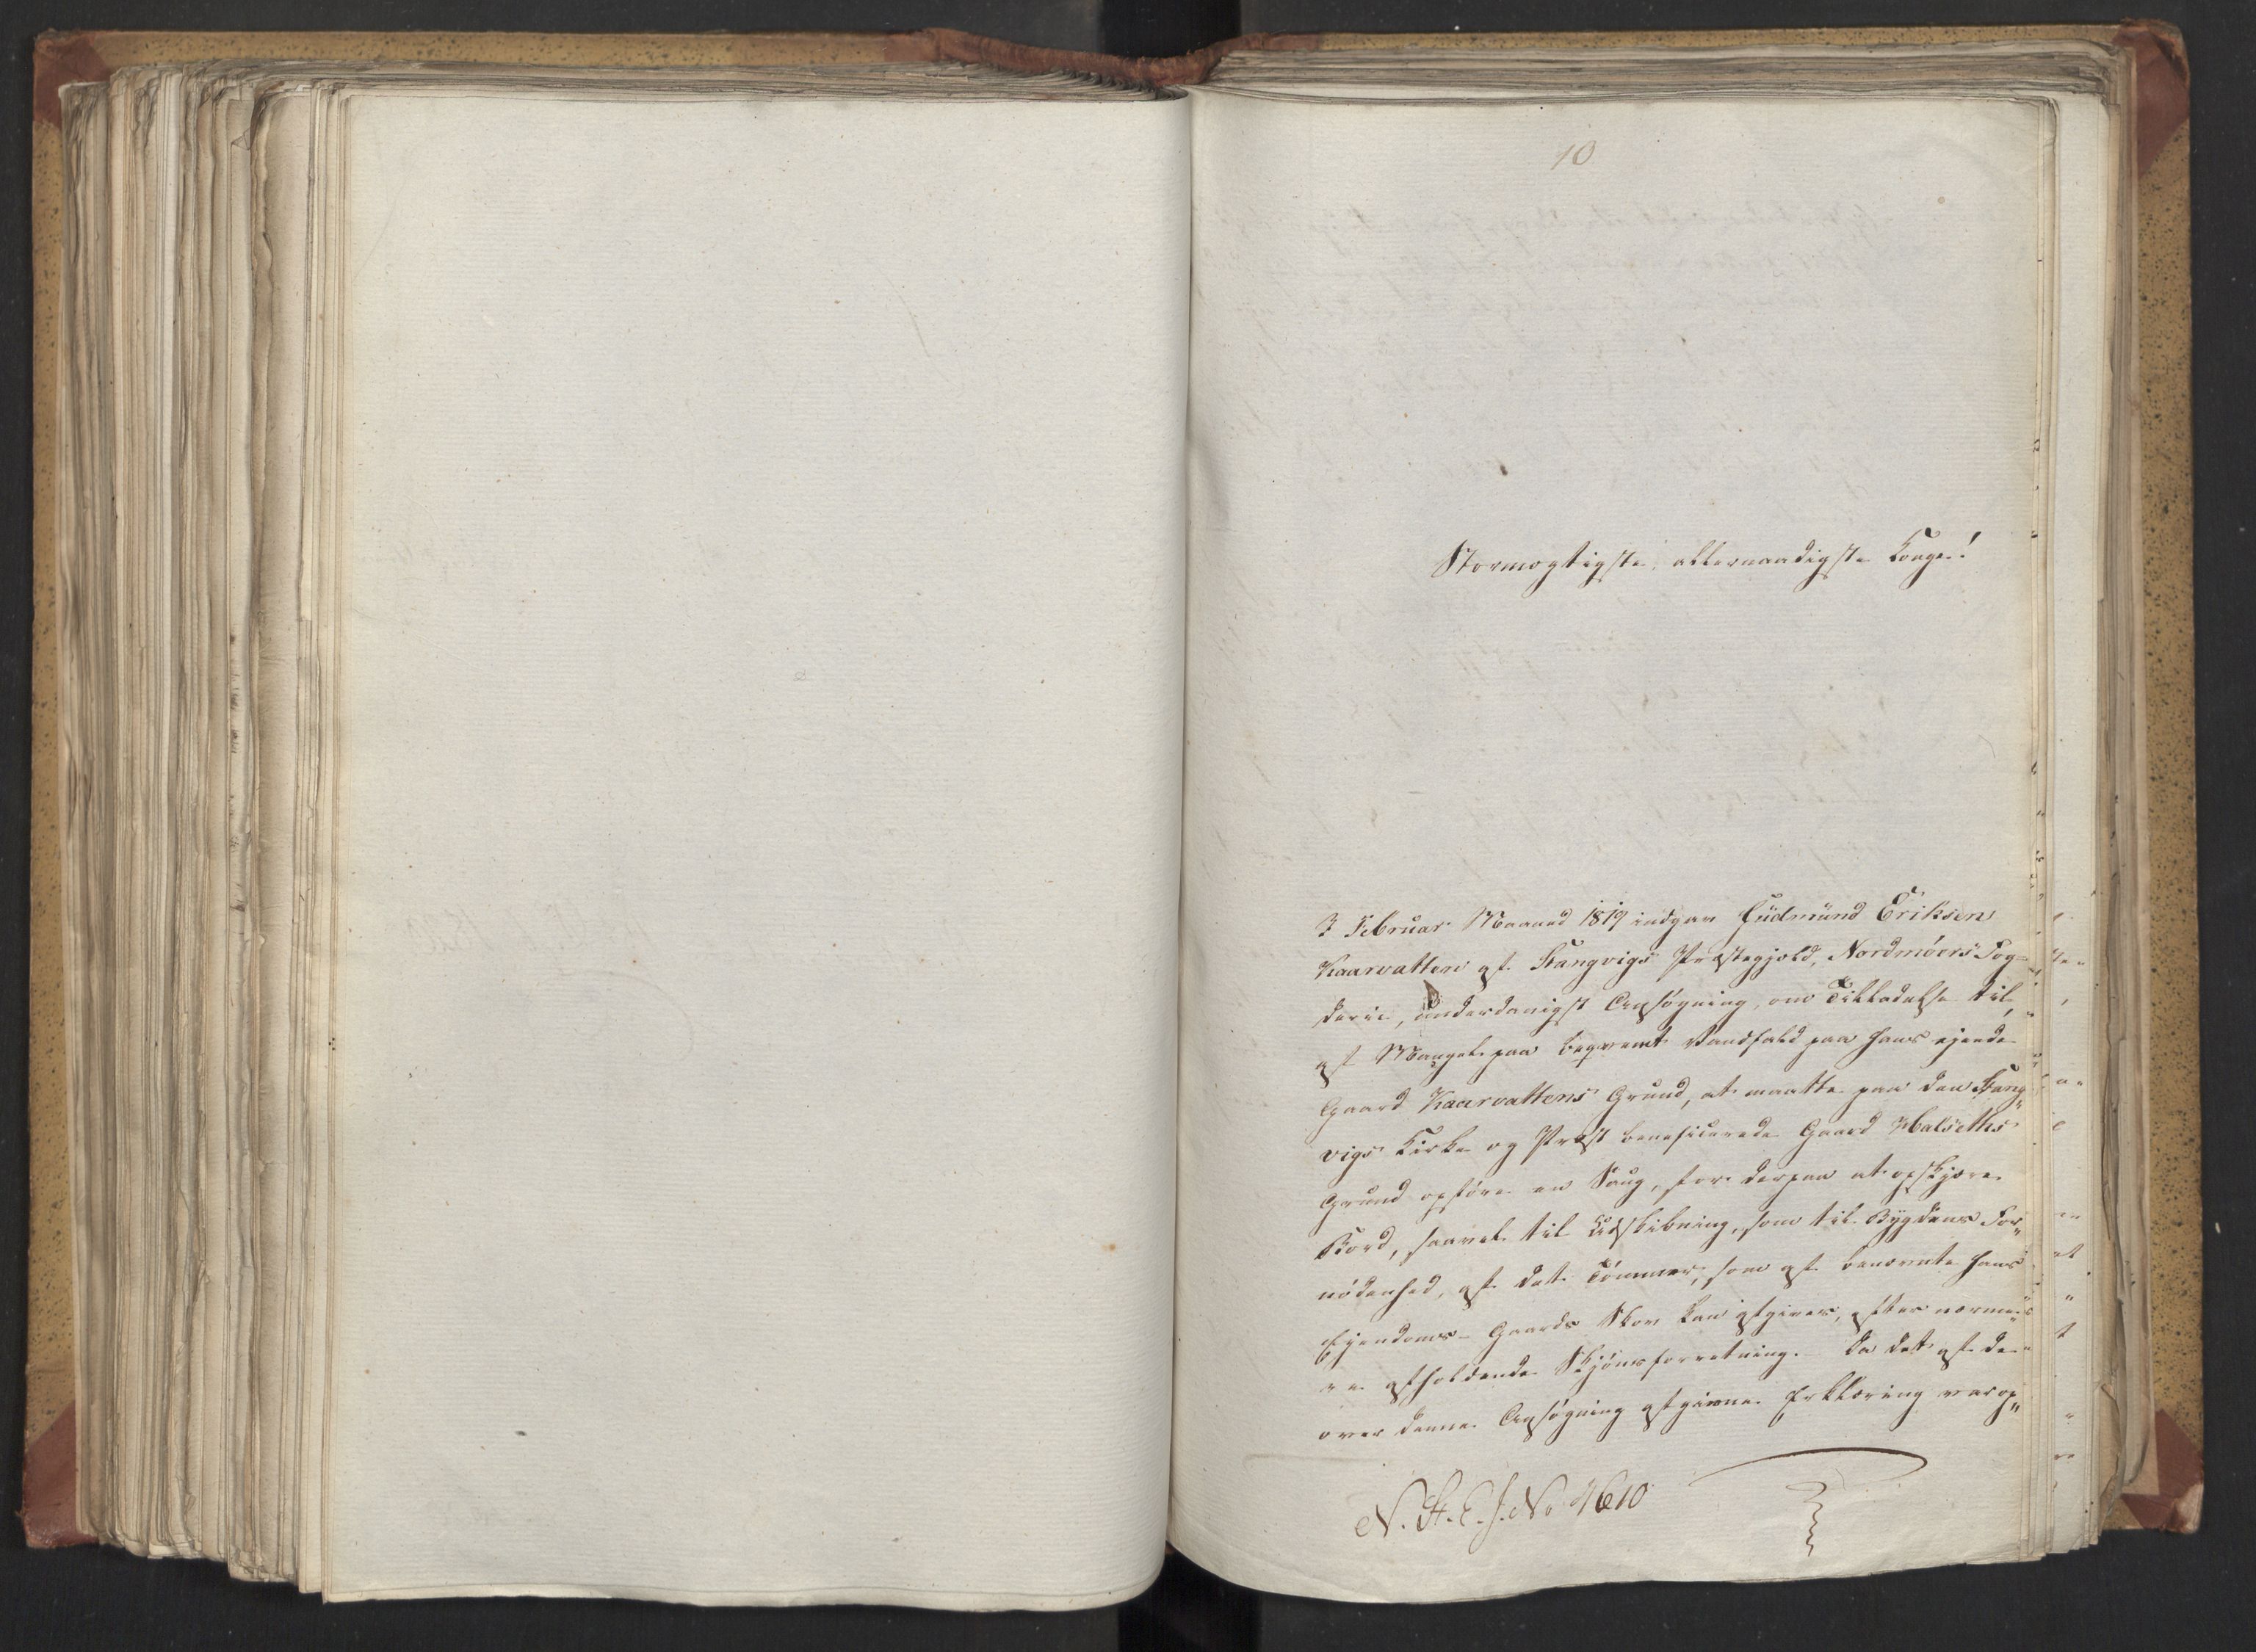 10
Stormægtigste, allernaadigste Konge!
I Februar Maaned 1819 indgav Gudmund Eriksen
Kaarvatten af Stangvigs Præstegjæld, Nordmöers Fog-
derie, underdanigst Ansøgning, om Tilladelse til,
af Mangel paa beqvemt Vandfald paa hans ejende
Gaard Kaarvattens Grund, at maatte paa den Stang„
vigs Kirke og Præst beneficerede Gaard Halseths
Grund opføre en Saug, for derpaa at opskjære
Bord, saavel til Udskibning, som til Bygdens For„
nødenhed, af det Tømmer, som af benævnte hans
Ejendoms-Gaards Skov kan afgives, efter nærme„
re afholdende Skjønsforretning. Da det af de
over denne Ansøgning afgivne Erklæring var op„
N. St. E. J. No 4610